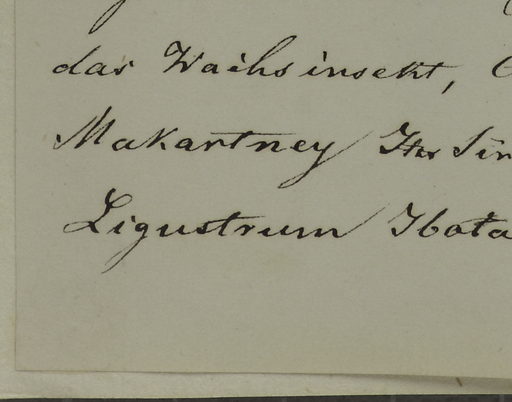 das Wachsinsekt,
Makartney
Ligustrum Ibota